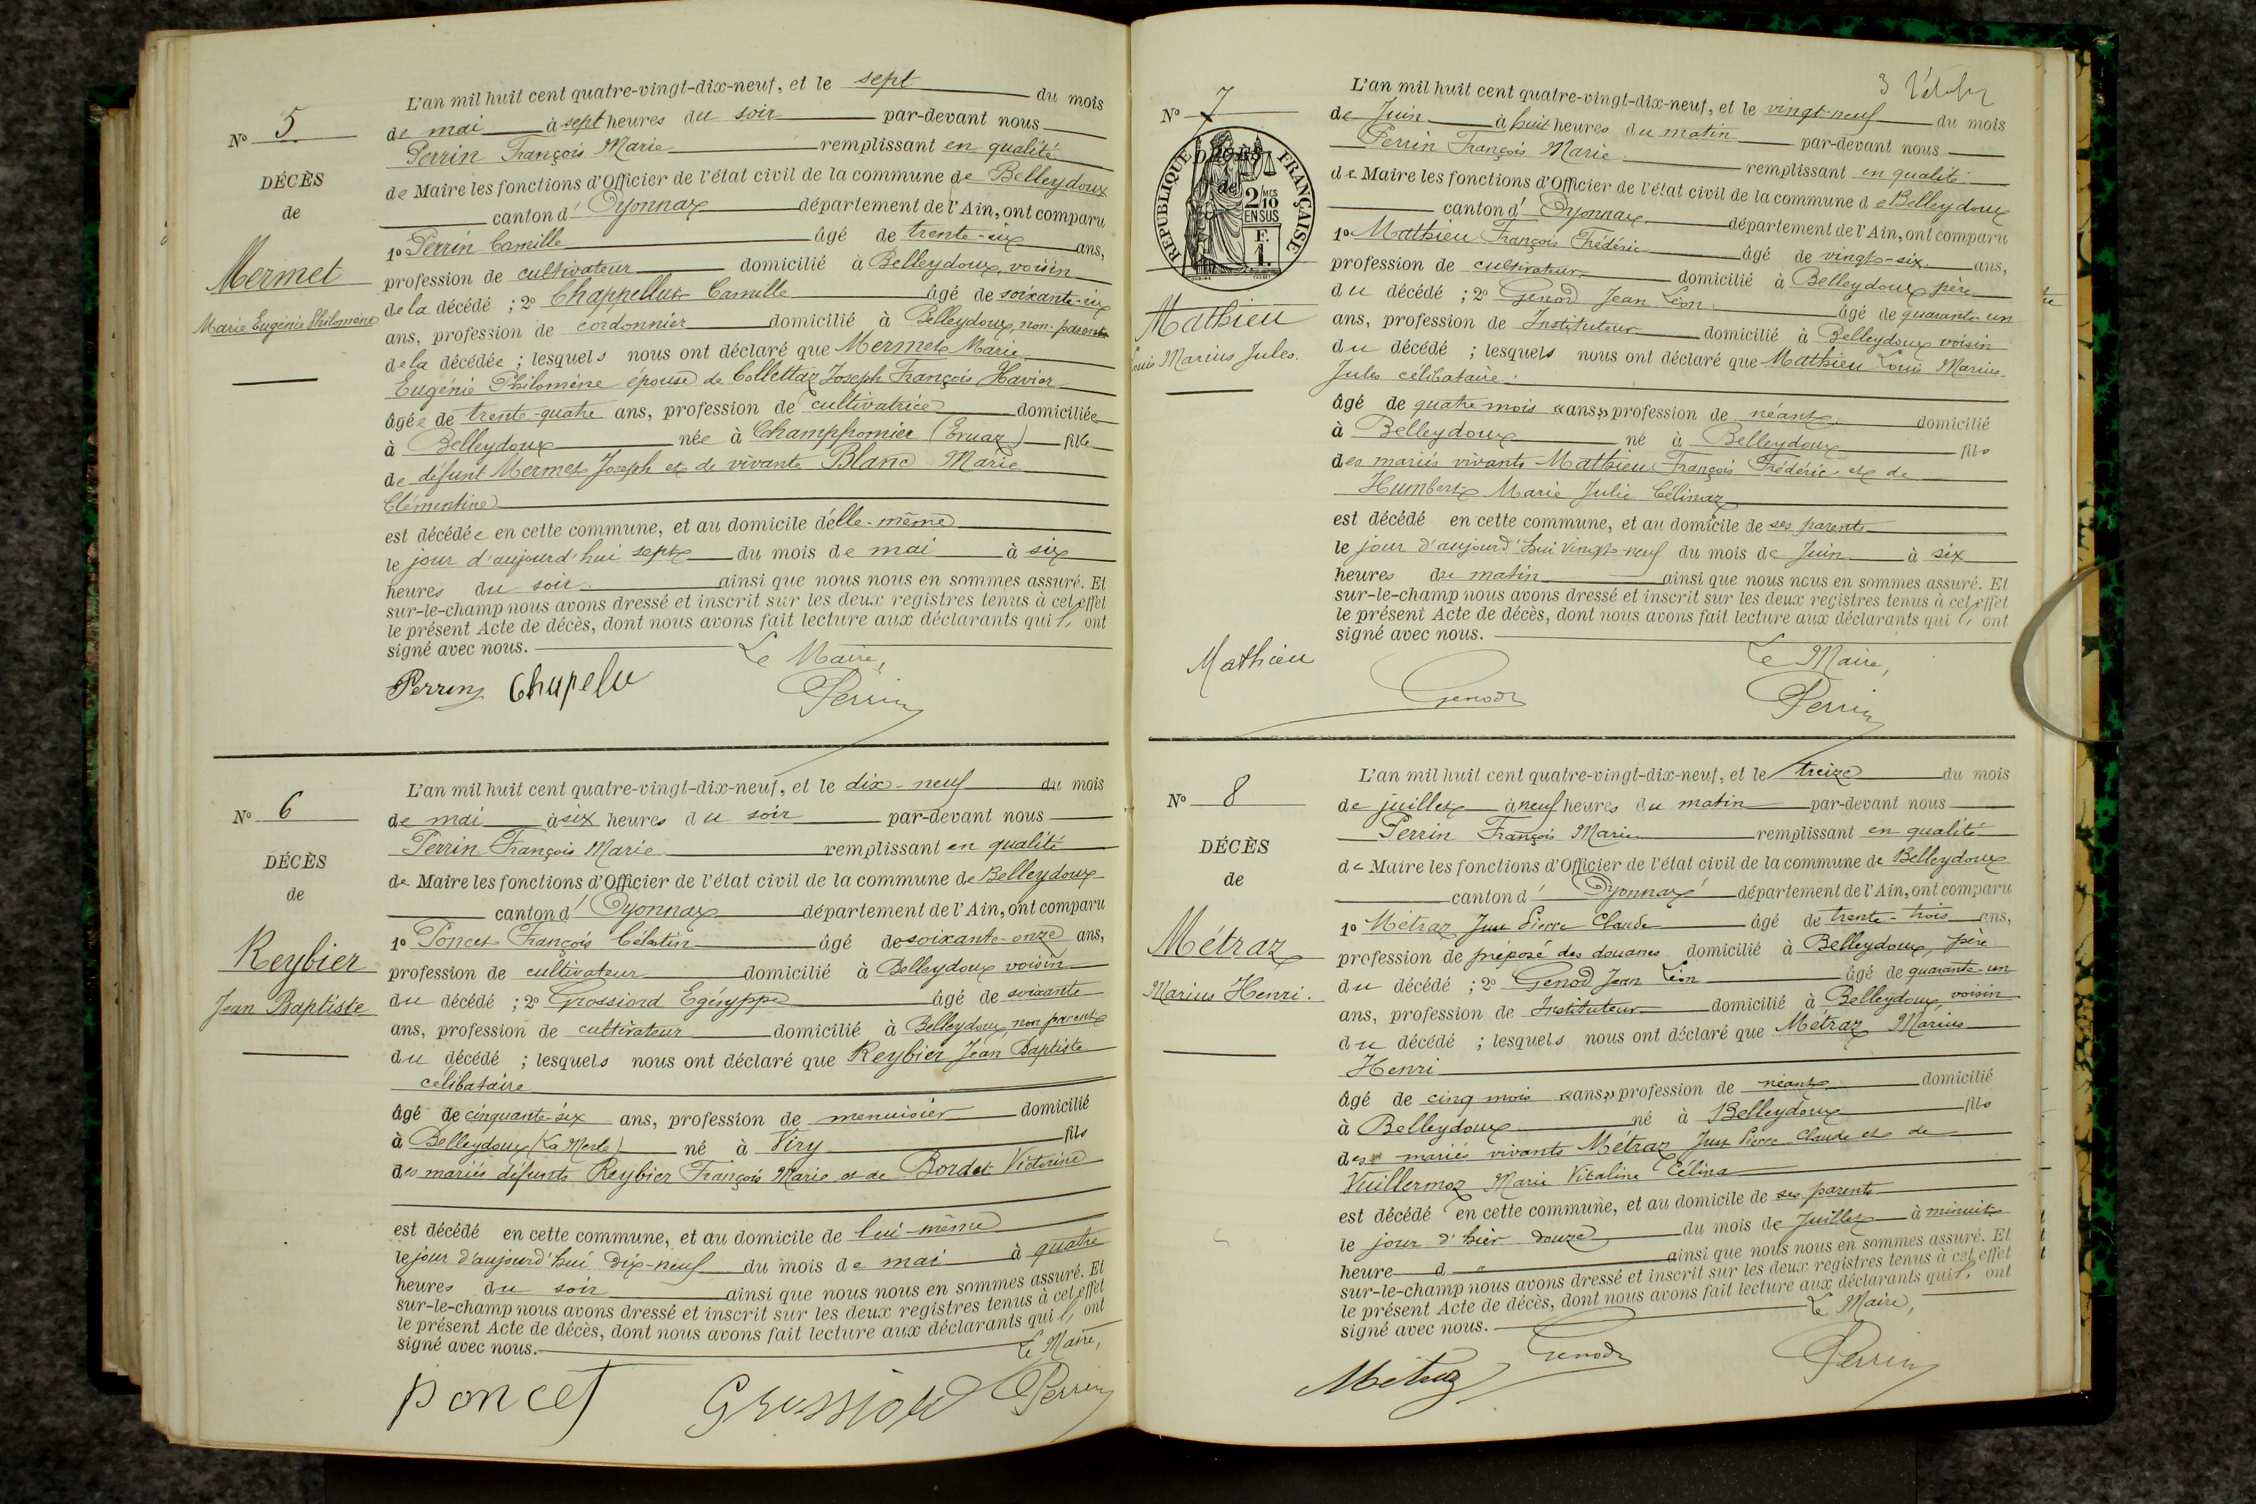 N° 5
DÉCÈS
de
Mermet
Marie Eugénie Philomène
L'an mil huit cent quatre-vingt-dix-neuf, et le sept du mois
de mai à sept heures du soir par-devant nous
Perrin François Marie remplissant en qualité
de Maire les fonctions d'Officier de l'état civil de la commune de Belleydoux
canton d' Oyonnax département de l'Ain, ont comparu
1° Perrin Camille âgé de trente-six ans,
profession de cultivateur domicilié à Belleydoux, voisin
de la décédé ; 2° Chappellut Camille âgé de soixante-six
ans, profession de cordonnier domicilié à Belleydoux, non-parent
de la décédée ; lesquels nous ont déclaré que Mermet Marie
Eugénie Philomène épouse de Collettaz Joseph François Xavier
âgée de trente-quatre ans, profession de cultivatrice domiciliée
à Belleydoux née à Champfromier (Evuaz) fille
de défunt Mermet Joseph et de vivante Blanc Marie
Clémentine
est décédée en cette commune, et au domicile d'elle-même
le jour d'aujourd'hui sept du mois de mai à six
heures du soir ainsi que nous nous en sommes assuré. Et
sur-le-champ nous avons dressé et inscrit sur les deux registres tenus à cet effet
le présent Acte de décès, dont nous avons fait lecture aux déclarants qui l' ont
signé avec nous. Le Maire,
Perrin Chapelu Perrin
N° 6
DÉCÈS
de
Reybier
Jean Baptiste
L'an mil huit cent quatre-vingt-dix-neuf, et le dix-neuf du mois
de mai à six heures du soir par-devant nous
Perrin François Marie remplissant en qualité
de Maire les fonctions d'Officier de l'état civil de la commune de Belleydoux
canton d' Oyonnax département de l'Ain, ont comparu
1° Poncet François Célestin âgé de soixante-onze ans,
profession de cultivateur domicilié à Belleydoux voisin
du décédé ; 2° Grossiord Egésyppe âgé de soixante
ans, profession de cultivateur domicilié à Belleydoux, non parent
du décédé ; lesquels nous ont déclaré que Reybier Jean Baptiste
célibataire
âgé de cinquante-six ans, profession de menuisier domicilié
à Belleydoux (La Merle) né à Viry fils
des mariés défunts Reybier François Marie et de Bordet Victorine
est décédé en cette commune, et au domicile de lui-même
le jour d'aujourd'hui Dix-neuf du mois de mai à quatre
heures du soir ainsi que nous nous en sommes assuré. Et
sur-le-champ nous avons dressé et inscrit sur les deux registres tenus à cet effet
le présent Acte de décès, dont nous avons fait lecture aux déclarants qui l' ont
signé avec nous. Le Maire,
poncet Grossiord Perrin
N° 7
REPUBLIQUE FRANÇAISE
2/10 MES
EN SUS
F.
1.
Mathieu
Louis Marius Jules.
L'an mil huit cent quatre-vingt-dix-neuf, et le vingt-neuf du mois
de Juin à huit heures du matin par-devant nous
Perrin François Marie remplissant en qualité
de Maire les fonctions d'Officier de l'état civil de la commune de Belleydoux
canton d' Oyonnax département de l'Ain, ont comparu
1° Mathieu François Frédéric âgé de vingt-six ans,
profession de cultivateur domicilié à Belleydoux père
du décédé ; 2° Genod Jean Léon âgé de quarante-un
ans, profession de Instituteur domicilié à Belleydoux voisin
du décédé ; lesquels nous ont déclaré que Mathieu Louis Marius
Jules célibataire
âgé de quatre mois «ans» profession de néant domicilié
à Belleydoux né à Belleydoux fils
des mariés vivants Mathieu François Frédéric et de
Humbert Marie Julie Célinaz
est décédé en cette commune, et au domicile de ses parents
le jour d'aujourd'hui vingt-neuf du mois de Juin à six
heures du matin ainsi que nous nous en sommes assuré. Et
sur-le-champ nous avons dressé et inscrit sur les deux registres tenus à cet effet
le présent Acte de décès, dont nous avons fait lecture aux déclarants qui l' ont
signé avec nous. Le Maire,
Mathieu Genod Perrin
N° 8
DÉCÈS
de
Métraz
Marius Henri.
L'an mil huit cent quatre-vingt-dix-neuf, et le treize du mois
de juillet à neuf heures du matin par-devant nous
Perrin François Marie remplissant en qualité
de Maire les fonctions d'Officier de l'état civil de la commune de Belleydoux
canton d' Oyonnax département de l'Ain, ont comparu
1° Métraz Just Pierre Claude âgé de trente-trois ans,
profession de préposé des douanes domicilié à Belleydoux, père
du décédé ; 2° Genod Jean Léon âgé de quarante-un
ans, profession de Instituteur domicilié à Belleydoux, voisin
du décédé ; lesquels nous ont déclaré que Métraz Marius
Henri
âgé de cinq mois «ans» profession de néant domicilié
à Belleydoux né à Belleydoux fils
des mariés vivants Métraz Just Pierre Claude et de
Vuillermoz Marie Vitaline Célina
est décédé en cette commune, et au domicile de ses parents
le jour d'hier douze du mois de Juillet à minuit
heure d " ainsi que nous nous en sommes assuré. Et
sur-le-champ nous avons dressé et inscrit sur les deux registres tenus à cet effet
le présent Acte de décès, dont nous avons fait lecture aux déclarants qui l' ont
signé avec nous. Le Maire,
Métraz Genod Perrin